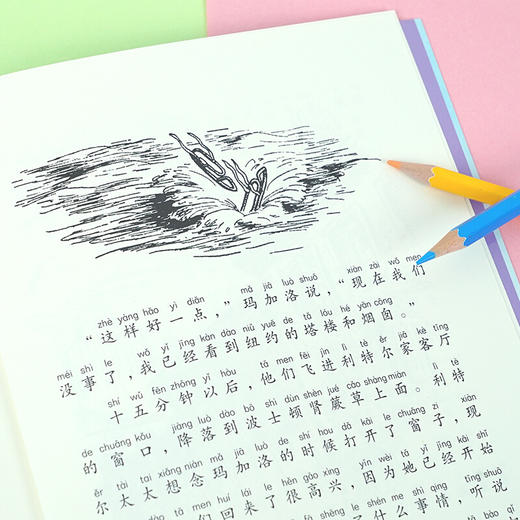 zhè yàng hǎo yì diǎn mǎ jiā luò shuō xiàn zài wǒ men
“这样好一点，”玛加洛说，“现在我们
méi shì le wǒ yǐ jīng kàn dào niǔ yuē de tǎ lóu hé yān cōng
没事了，我已经看到纽约的塔楼和烟囱。”
shí wǔ fēn zhōng yǐ hòu tā men fēi jìn lì tè ěr jiā kè tīng
十五分钟以后，他们飞进利特尔家客厅
de chuāng kǒu jiàng luò dào bō shì dùn shèn jué cǎo shàng miàn lì tè
的窗口，降落到波士顿肾蕨草上面。利特
ěr tài tai xiǎng niàn mǎ jiā luò de shí hou dǎ kāi le chuāng zi xiàn
尔太太想念玛加洛的时候打开了窗子，现
tā men huí lái le hěn gāo xìng yīn wèi tā yǐ jīng kāi shǐ
们回来了很高兴，因为她已经开始
shēng le shén me shì qing tīng shuō
了什么事情，听说